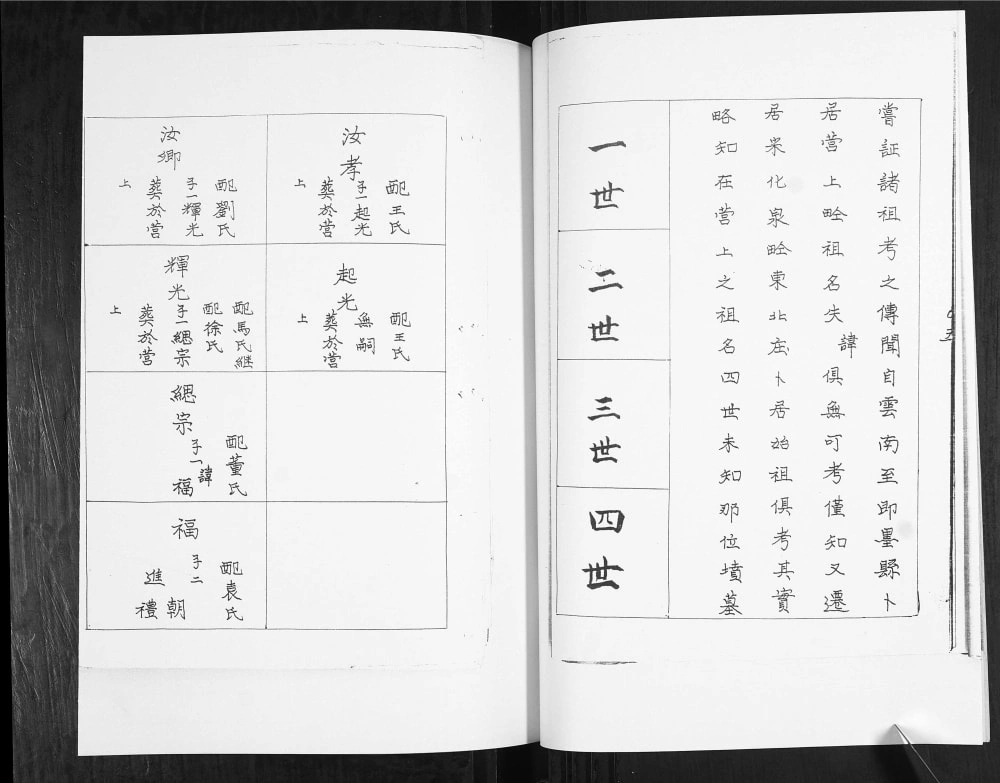 嘗証諸祖考之傳聞自雲南至即墨縣卜
居營上畻祖名失諱俱無可考僅知又遷
居米化泉畻東北庄卜居始祖俱考其實
略知在營上之祖名四世未知那位墳墓
一世
二世
三世
四世
汝孝
配王氏
子一起光
葬於營
上
起光
配王氏
無嗣
葬於營
上
汝卿
配劉氏
子一輝光
葬於營
上
輝光
配馬氏継
配徐氏
子一緦宗
葬於營
上
緦宗
配董氏
子一諱
福
福
配袁氏
子二
朝
進
禮